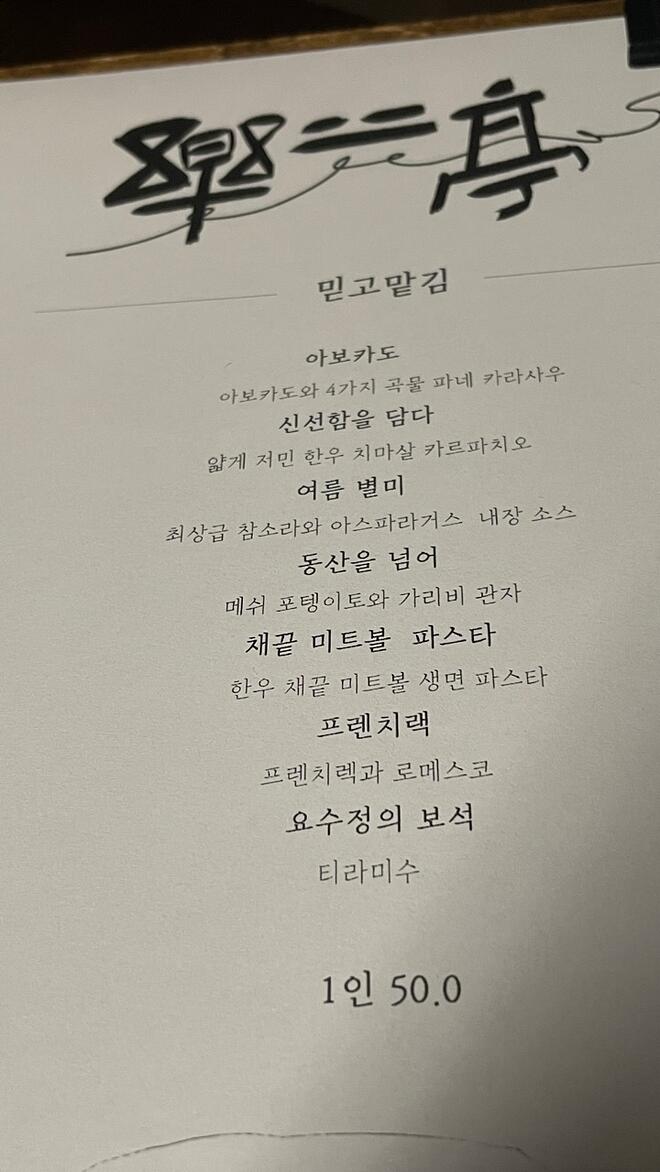 믿고맡김
아보카도
아보카도와 4가지 곡물 파네 카라사우
신선함을 담다
얇게 저민 한우 치마살 카르파치오
여름 별미
최상급 참소라와 아스파라거스 내장 소스
동산을 넘어
메쉬 포텡이토와 가리비 관자
채끝 미트볼 파스타
한우 채끝 미트볼 생면 파스타
프렌치랙
프렌치렉과 로메스코
요수정의 보석
티라미수
1인 50.0